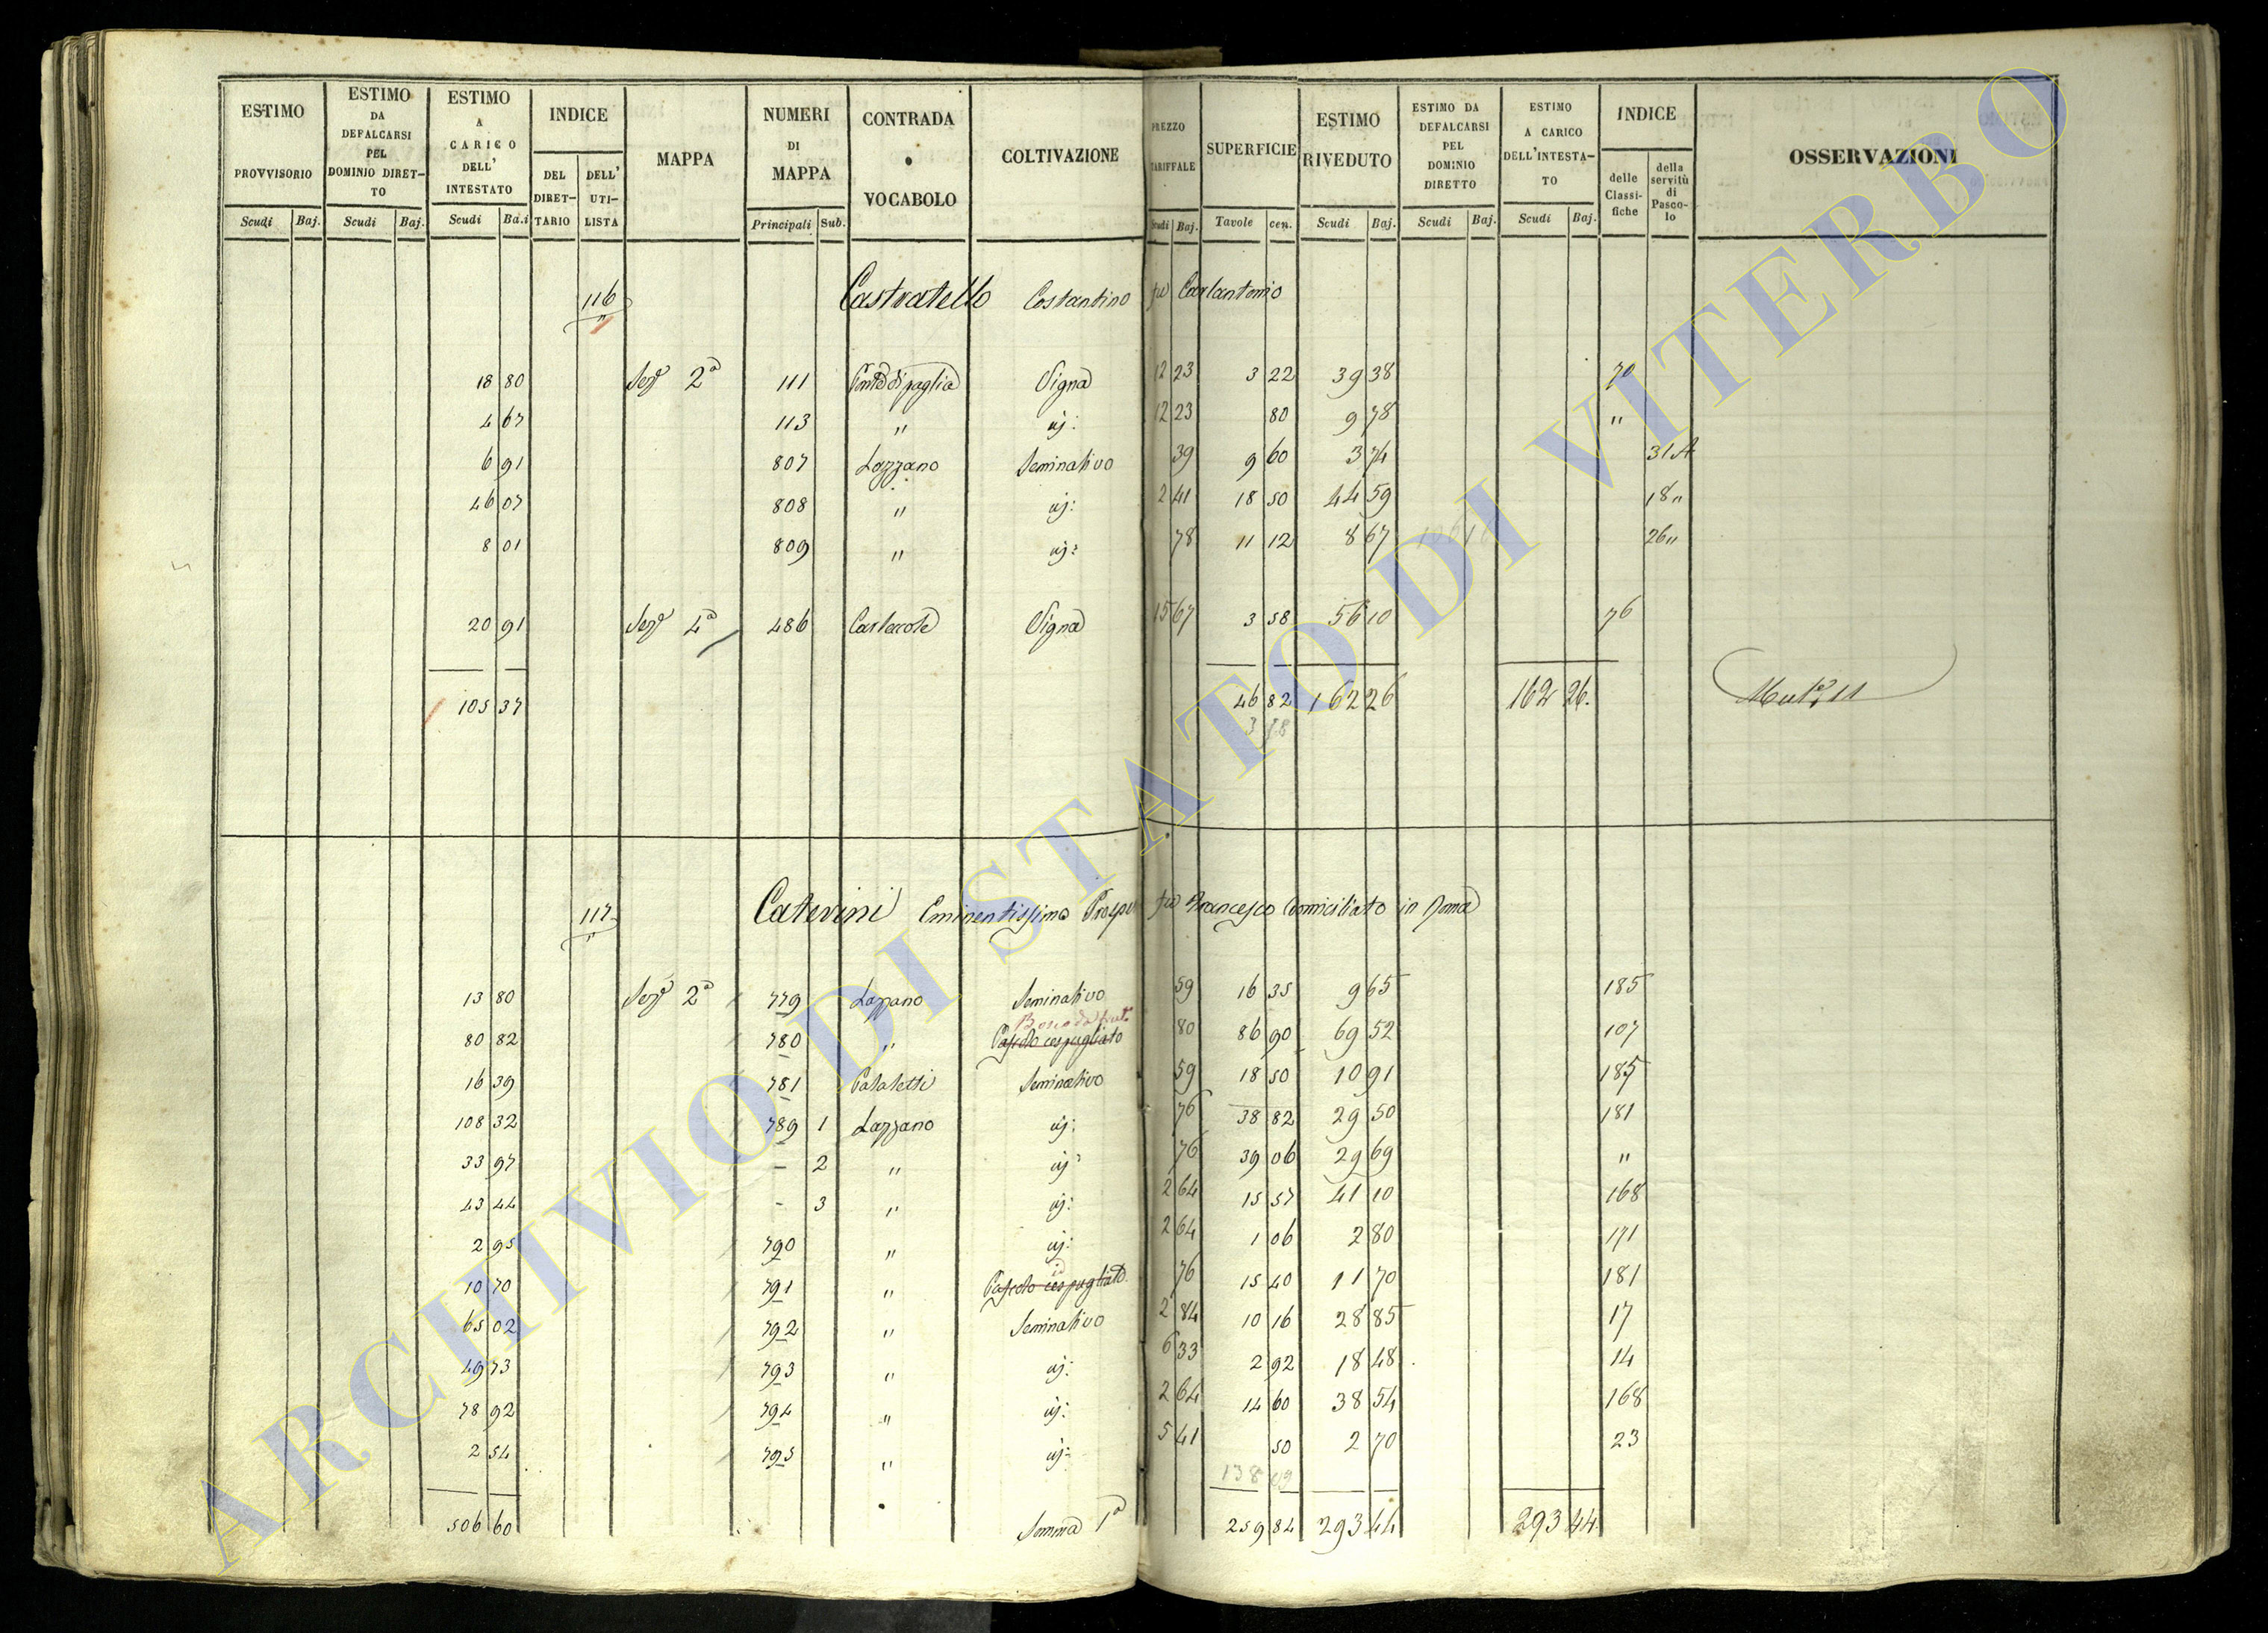 ESTIMO PROVVISORIO | ESTIMO DA DEFALCARSI PEL DOMINIO DIRET-TO | ESTIMO A CARICO DELL' INTESTATO | INDICE | MAPPA | NUMERI DI MAPPA | CONTRADA o VOCABOLO | COLTIVAZIONE | PREZZO TARIFFALE | SUPERFICIE | ESTIMO RIVEDUTO | ESTIMO DA DEFALCARSI PEL DOMINIO DIRETTO | ESTIMO A CARICO DELL'INTESTA-TO | INDICE | OSSERVAZIONI
Scudi | Baj. | Scudi | Baj. | Scudi | Ba.i | DEL DIRET-TARIO | DELL' UTI-LISTA | Principali | Sub. | Scudi | Baj. | Tavole | cen. | Scudi | Baj. | Scudi | Baj. | Scudi | Baj. | delle Classi-fiche | della servitù di Pasco-lo
116 Castratello Costantino fu Carlantonio
18 80 Sez.e 2a 111 Ponte di paglia Vigna 12 23 3 22 39 38 70
4 67 113 " id: 12 23 80 9 78 "
6 91 807 Lazzano Seminativo 39 9 60 3 74 31 A
46 07 808 " id: 2 41 18 50 44 59 18 "
8 01 809 " id: 78 11 12 8 67 26 "
20 91 Sez.e 4a 486 Vigna 15 67 3 58 56 10 76
105 37 46 82 162 26 162 26.
117 Caterini Eminentissimo Prospero fu Francesco domiciliato in Roma
13 80 Sez.e 2a 779 Lazzano Seminativo 59 16 35 9 65 185
Bosco da frut.o
80 82 780 " Pascolo cespugliato 80 86 90 69 52 107
16 39 781 Palaletti Seminativo 59 18 50 10 91 185
108 32 789 1 Lazzano id: 76 38 82 29 50 181
33 97 - 2 " id: 76 39 06 29 69 "
43 44 - 3 " id: 2 64 15 57 41 10 168
2 95 790 " id: 2 64 1 06 2 80 171
id
10 70 791 " Pascolo cespugliato 76 15 40 11 70 181
65 02 792 " Seminativo 2 84 10 16 28 85 17
49 73 793 " id: 6 33 2 92 18 48 14
78 92 794 " id: 2 64 14 60 38 54 168
2 54 795 " id: 5 41 50 2 70 23
138 09
506 60 Somma 1a 259 84 293 44 293 44
ARCHIVIO DI STATO DI VITERBO